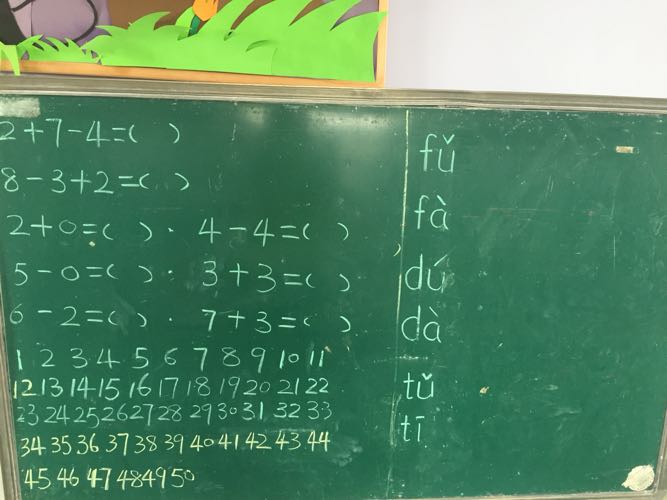 2+7-4=( )
8-3+2=( )
2+0=( ). 4-4=( )
5-0=( ). 3+3=( )
6-2=( ). 7+3=( )
1 2 3 4 5 6 7 8 9 10 11
12 13 14 15 16 17 18 19 20 21 22
23 24 25 26 27 28 29 30 31 32 33
34 35 36 37 38 39 40 41 42 43 44
45 46 47 48 49 50
fǔ
fà
dú
dà
tǔ
tī